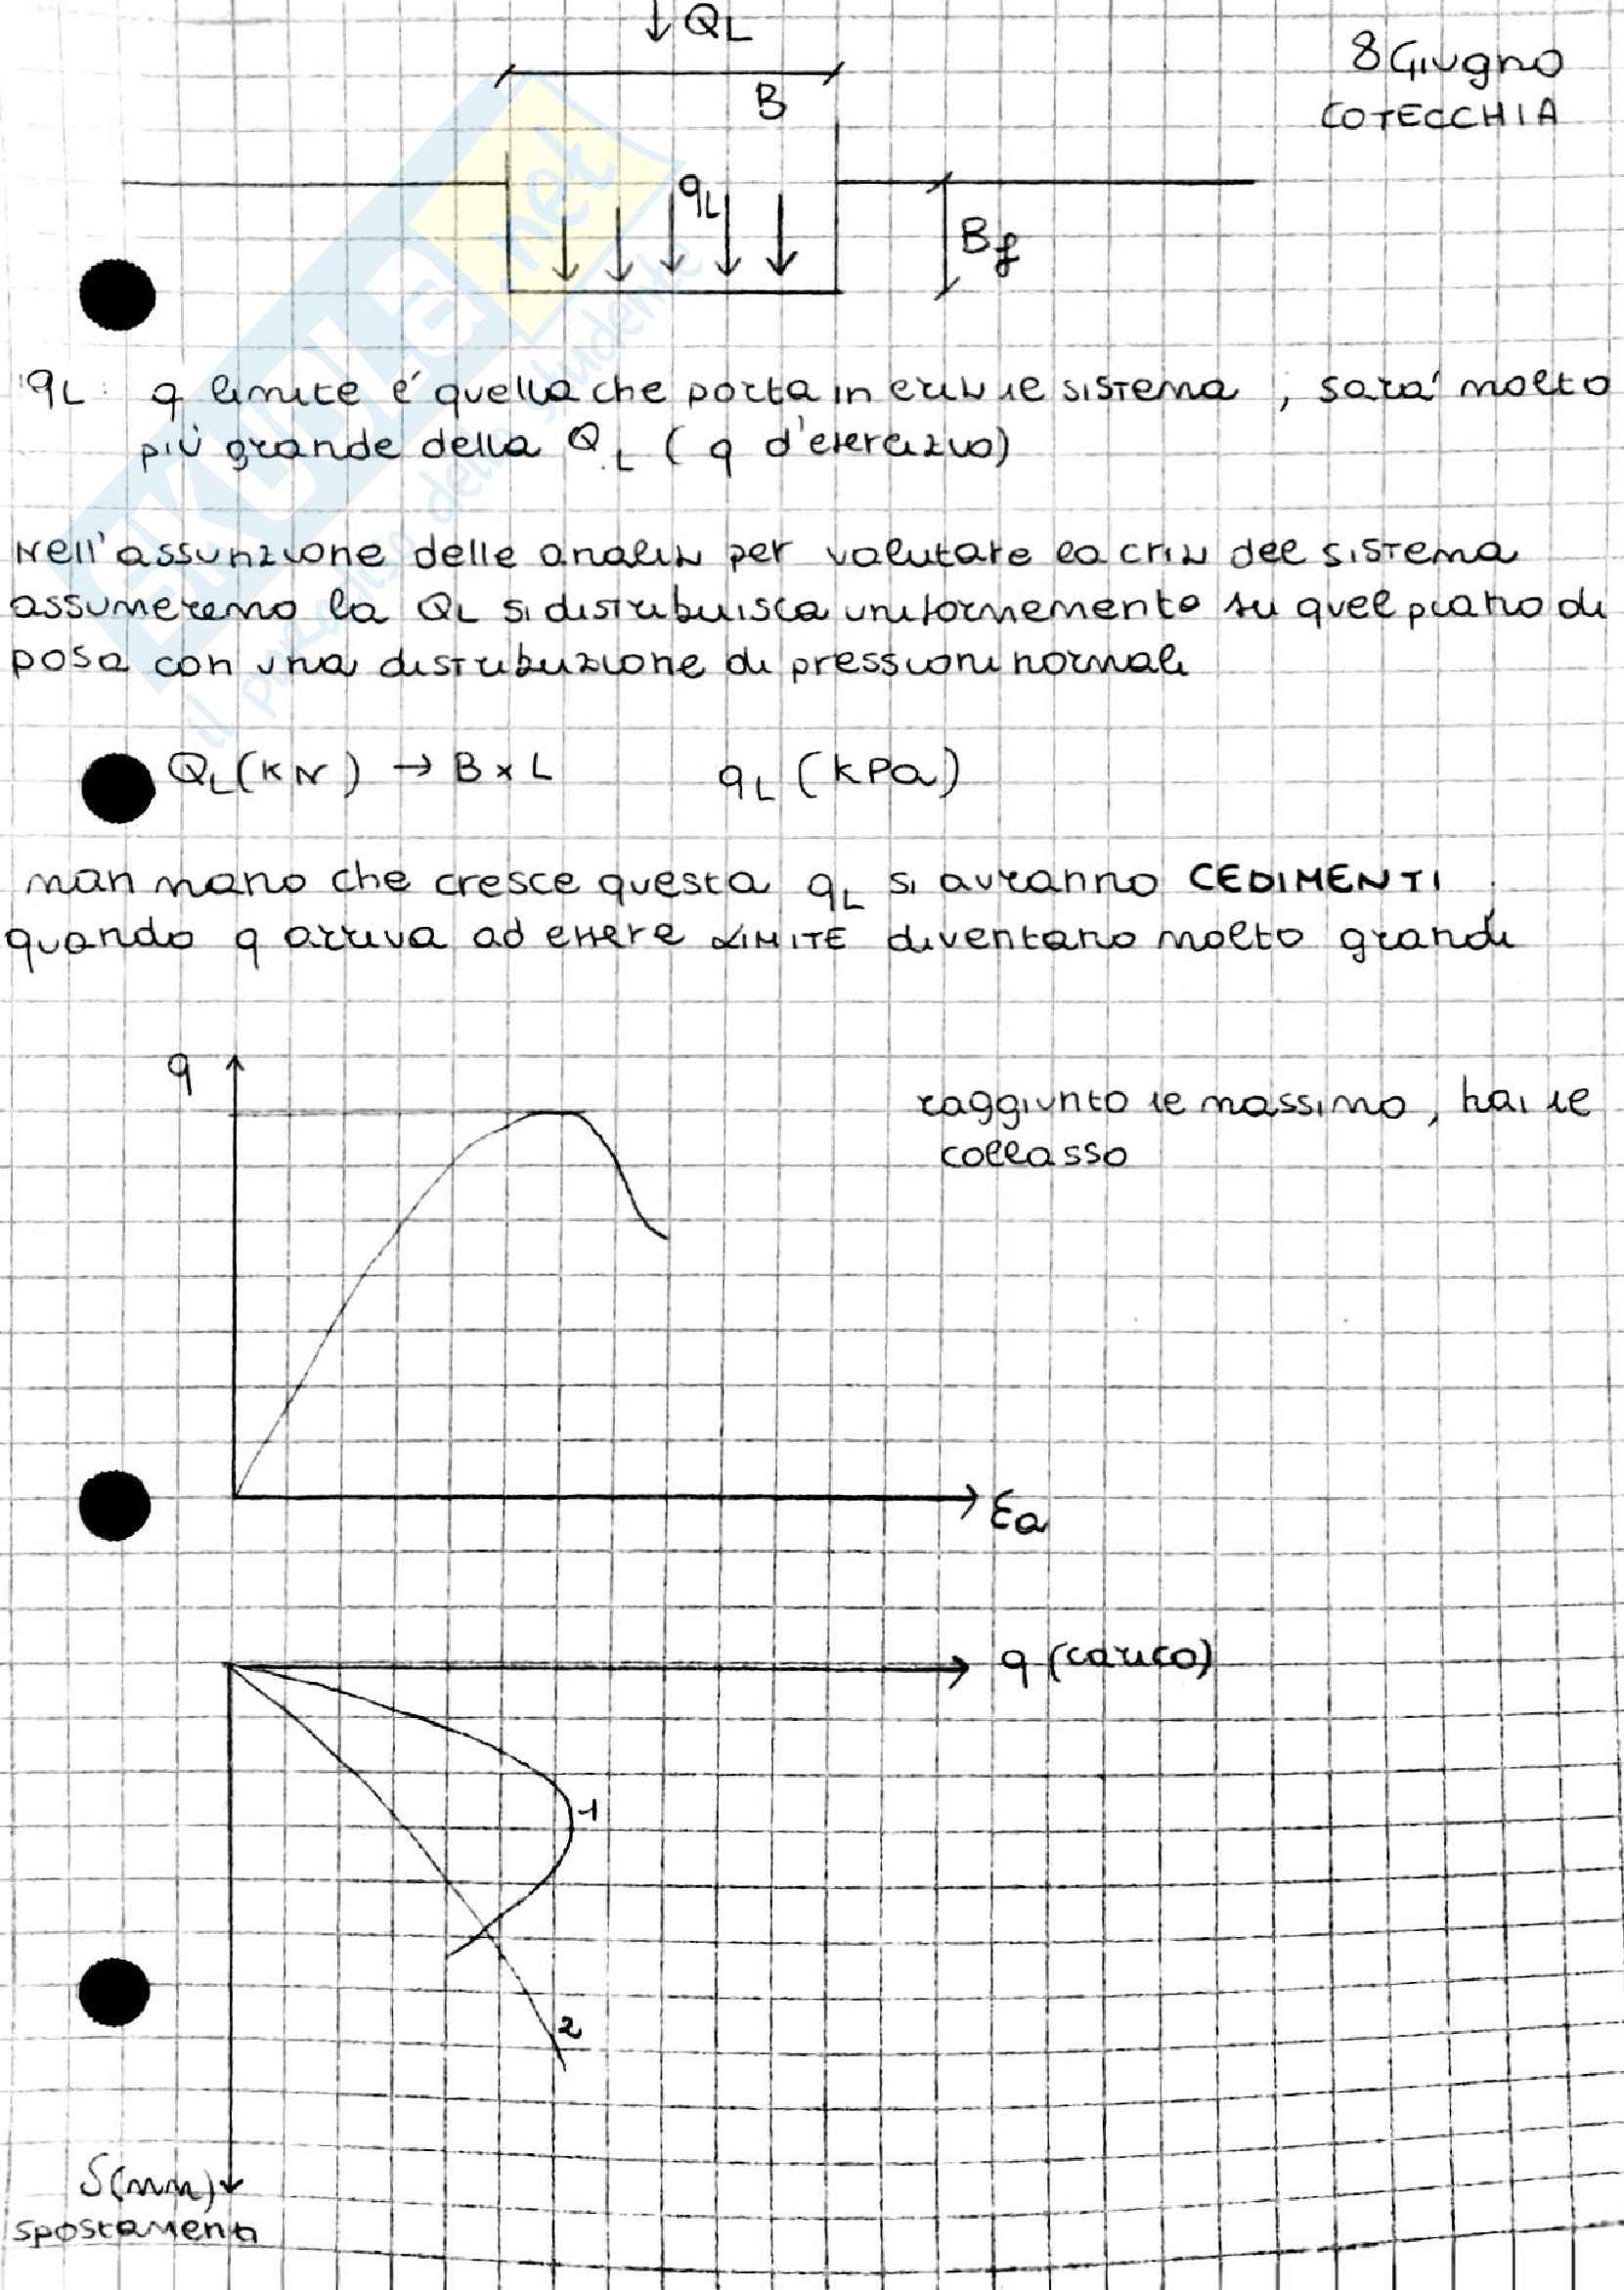 ↓ QL
8 Giugno
COTECCHIA
B
qL
Bf
qL: q limite é quella che porta in crisi il sistema, sara' molto
più grande della QL (q d'esercizio)
Nell'assunzione delle analisi per valutare la crisi del sistema
assumeremo la QL si distribuisca uniformemento su quel piano di
posa con una distribuzione di pressioni normali
QL (KN) → B x L qL (kPa)
man mano che cresce questa qL si avranno CEDIMENTI
quando q arriva ad essere LIMITE diventano molto grandi
q
raggiunto il massimo, hai il
collasso
εa
q (carico)
1
2
δ(mm)
spostamenti
SKUOLA.net
il paradiso dello studente